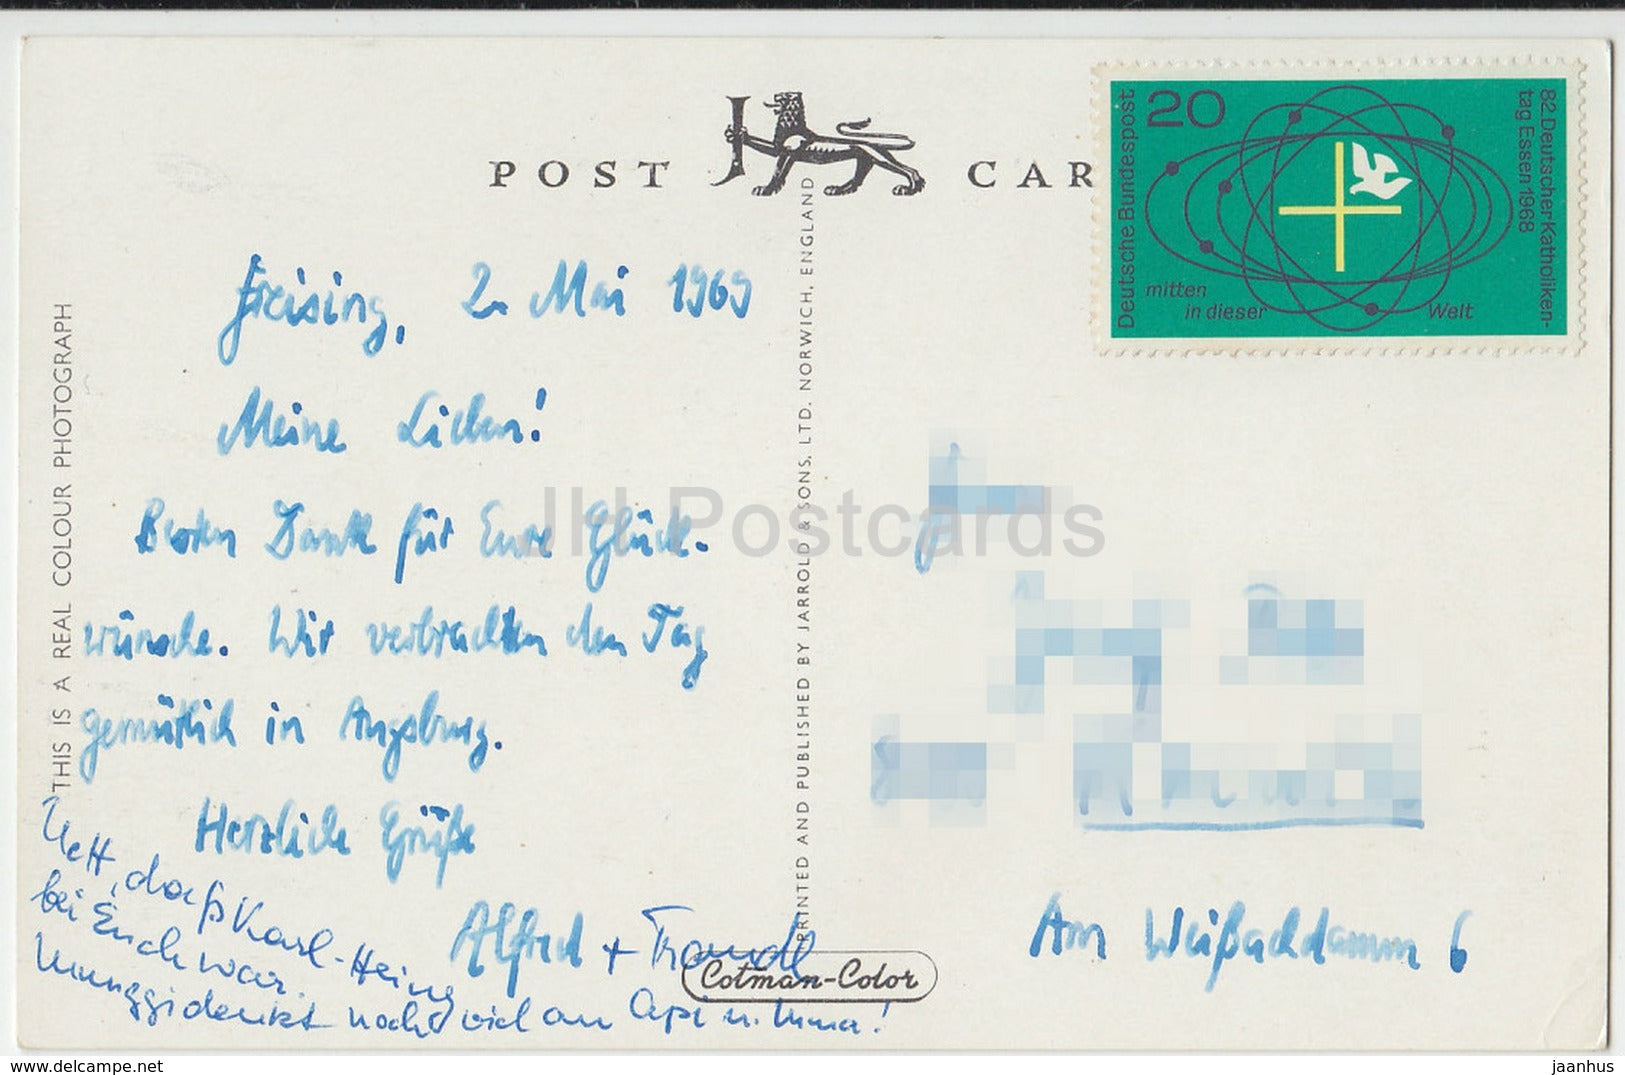 POST CAR
20
Deutsche Bundespost
82. Deutscher Katholiken-
tag Essen 1968
mitten
in dieser Welt
THIS IS A REAL COLOUR PHOTOGRAPH
PRINTED AND PUBLISHED BY JARROLD & SONS, LTD. NORWICH, ENGLAND
Freising, 2. Mai 1969
Meine Lieben!
Besten Dank für Eure Glück-
wünsche. Wir verbrachten den Tag
gemütlich in Augsburg.
Herzliche Grüße
Alfred + Traudl
Nett, daß Karl-Heinz
bei Euch war.
denkt noch viel an Opi u. Uma!
Am Weißachdamm 6
Cotman-Color
JH Postcards
www.delcampe.net
jaanhus